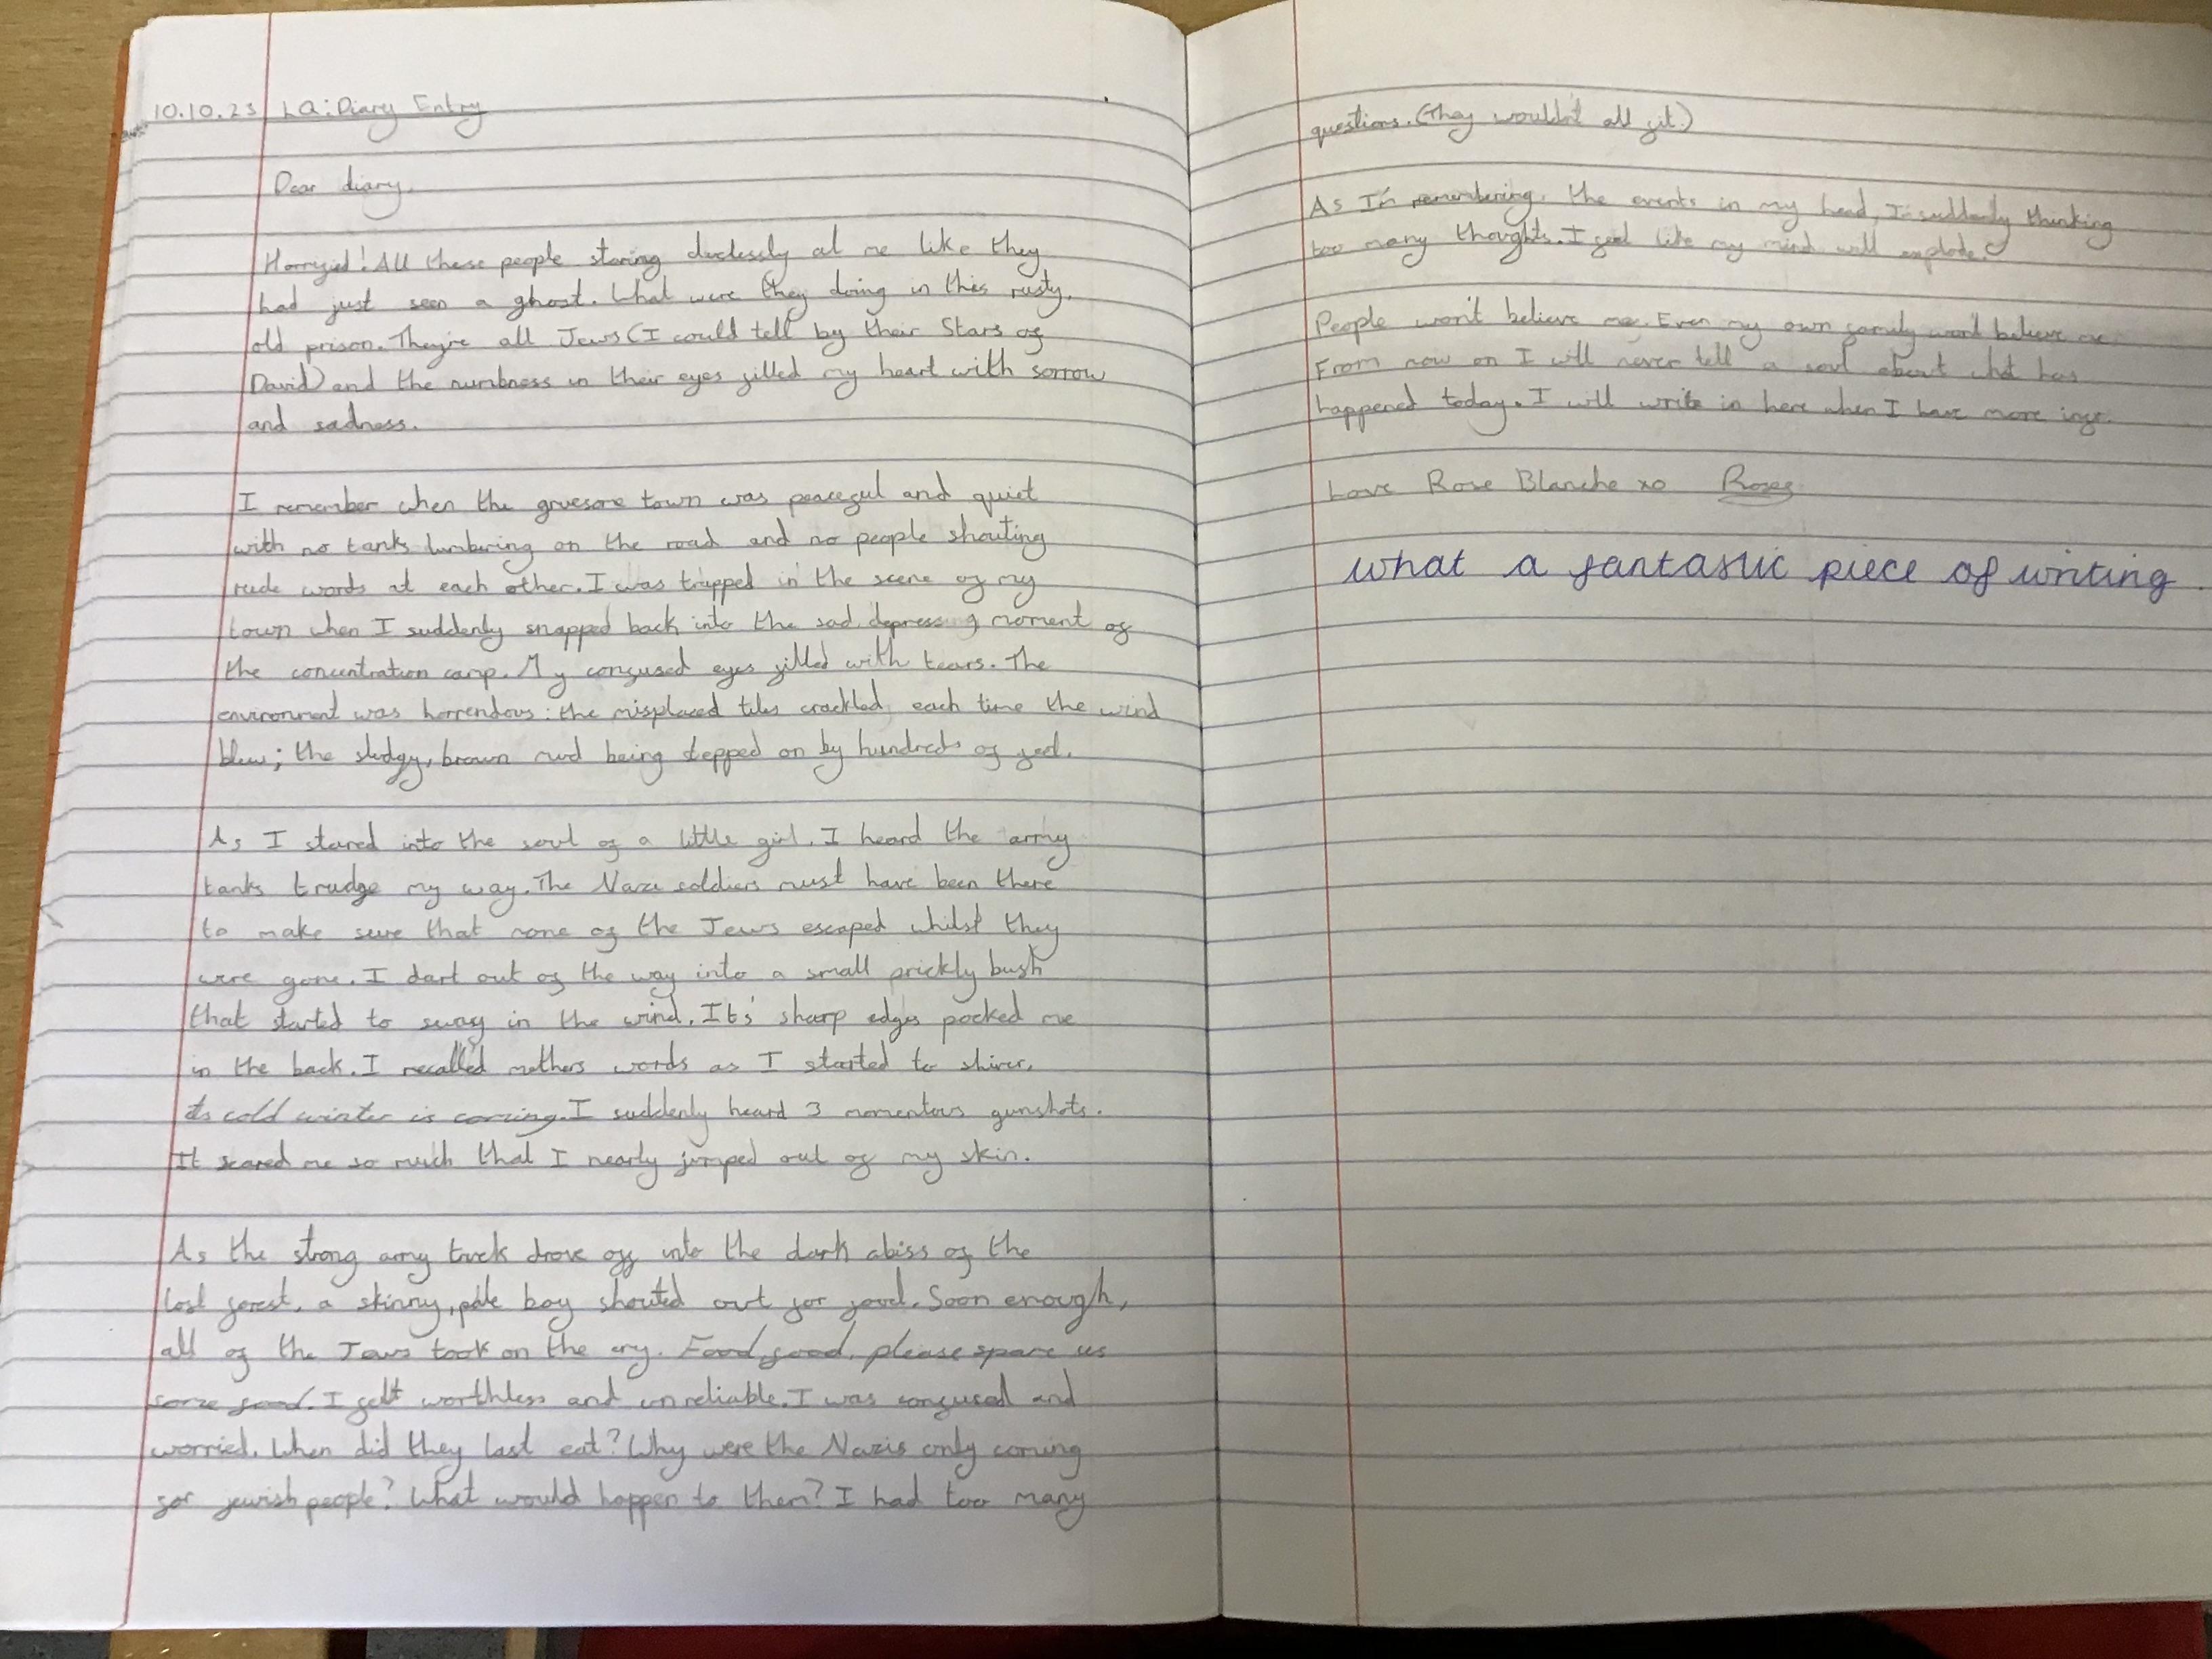 10.10.23 LQ: Diary Entry
Dear diary,
Horryied! All these people staring cluelessly at me like they
had just seen a ghost. What were they doing in this rusty,
old prison. They're all Jews (I could tell by their Stars of
David) and the numbness in their eyes filled my heart with sorrow
and sadness.
I remember when the gruesome town was peaceful and quiet
with no tanks lumbering on the road and no people shouting
rude words at each other. I was trapped in the scene of my
town when I suddenly snapped back into the sad, depressing moment of
the concentration camp. My confused eyes filled with tears. The
environment was horrendous: the misplaced tiles crackled each time the wind
blew; the sludgy, brown mud being stepped on by hundreds of feet.
As I stared into the soul of a little girl, I heard the army
tanks trudge my way. The Nazi soldiers must have been there
to make sure that none of the Jews escaped whilst they
were gone. I dart out of the way into a small prickly bush
that started to sway in the wind. It's sharp edges pocked me
in the back. I recalled mothers words as I started to shiver,
its cold winter is coming. I suddenly heard 3 momentous gunshots.
It scared me so much that I nearly jumped out of my skin.
As the strong army truck drove off into the dark abiss of the
lost forest, a skinny, pale boy shouted out for food. Soon enough,
all of the Jews took on the cry. Food, food, please spare us
some food. I felt worthless and unreliable. I was confused and
worried. When did they last eat? Why were the Nazis only coming
for jewish people? What would happen to them? I had too many
questions. (They wouldn't all fit.)
As I'm remembering, the events in my head, I'm suddenly thinking
too many thoughts. I feel like my mind will explode.
People won't believe me. Even my own family won't believe me.
From now on I will never tell a soul about what has
happened today. I will write in here when I have more info.
Love Rose Blanche xo Roses
what a fantastic piece of writing.